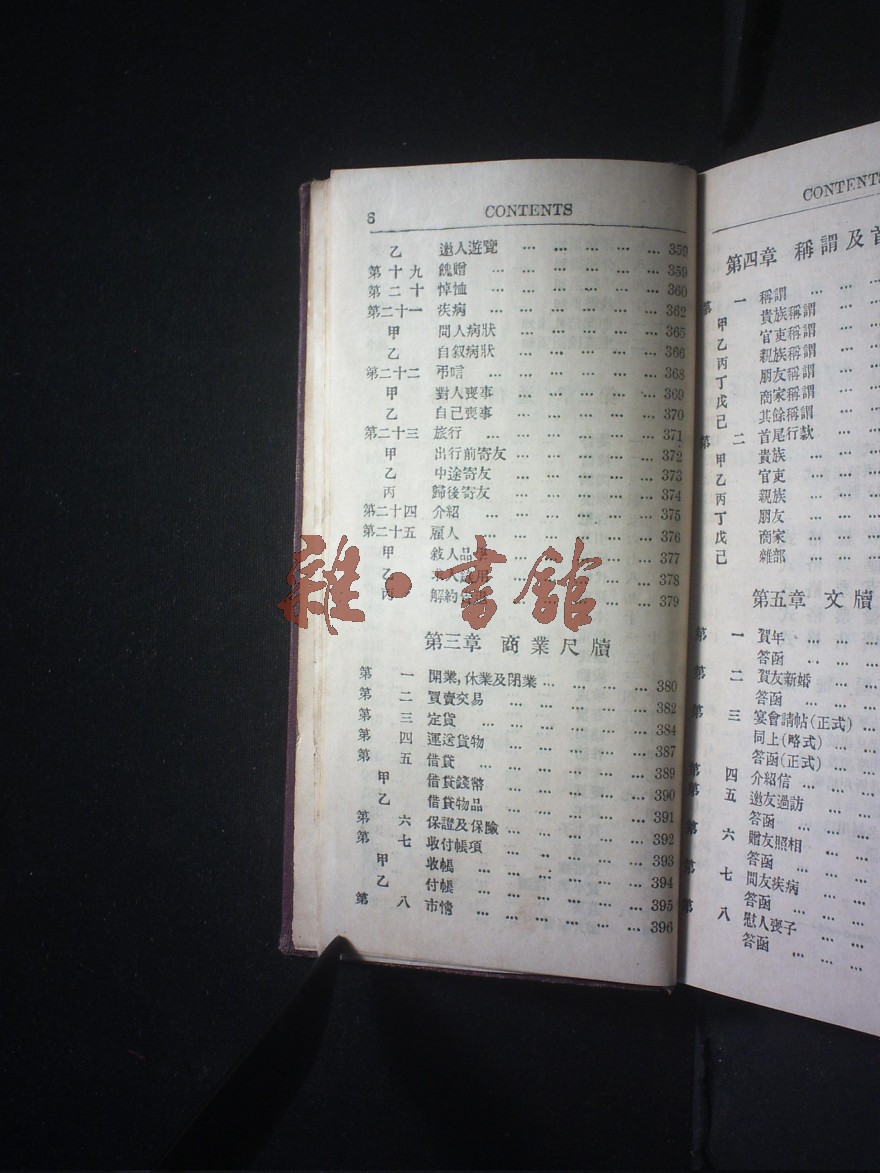 8 CONTENTS
乙 邀人遊覽 … … … … … 359
第十九 餽贈 … … … … … … 359
第二十 悼恤 … … … … … … 360
第二十一 疾病 … … … … … … 362
甲 問人病狀 … … … … … 365
乙 自叙病狀 … … … … … 366
第二十二 弔唁 … … … … … … 368
甲 對人喪事 … … … … … 369
乙 自己喪事 … … … … … 370
第二十三 旅行 … … … … … … 371
甲 出行前寄友 … … … … … 372
乙 中途寄友 … … … … … 373
丙 歸後寄友 … … … … … 374
第二十四 介紹 … … … … … … 375
第二十五 雇人 … … … … … … 376
甲 敍人品學 … … … … … 377
乙 求人 用 … … … … … 378
丙 解約 … … … … … 379
雜·書館
第三章 商業尺牘
第一 開業,休業及閉業 … … … … 380
第二 買賣交易 … … … … … 382
第三 定貨 … … … … … … 384
第四 運送貨物 … … … … … 387
第五 借貸 … … … … … … 389
甲 借貸錢幣 … … … … … 390
乙 借貸物品 … … … … … 391
第六 保證及保險 … … … … … 392
第七 收付帳項 … … … … … 393
甲 收帳 … … … … … … 394
乙 付帳 … … … … … … 395
第八 市情 … … … … … … 396
CONTENTS
第四章 稱謂及首
第一 稱謂 … … …
甲 貴族稱謂 … …
乙 官吏稱謂 … …
丙 親族稱謂 … …
丁 朋友稱謂 … …
戊 商家稱謂 … …
己 其餘稱謂 … …
第二 首尾行款 … …
甲 貴族 … … …
乙 官吏 … … …
丙 親族 … … …
丁 朋友 … … …
戊 商家 … … …
己 雜部 … … …
第五章 文牘
第一 賀年 … … …
答函 … … …
第二 賀友新婚 … …
答函 … … …
第三 宴會請帖(正式) …
同上(略式) … …
答函(正式) … …
第四 介紹信 … …
第五 邀友過訪 … …
答函 … … …
第六 贈友照相 … …
答函 … … …
第七 問友疾病 … …
答函 … … …
第八 慰人喪子 … …
答函 … … …